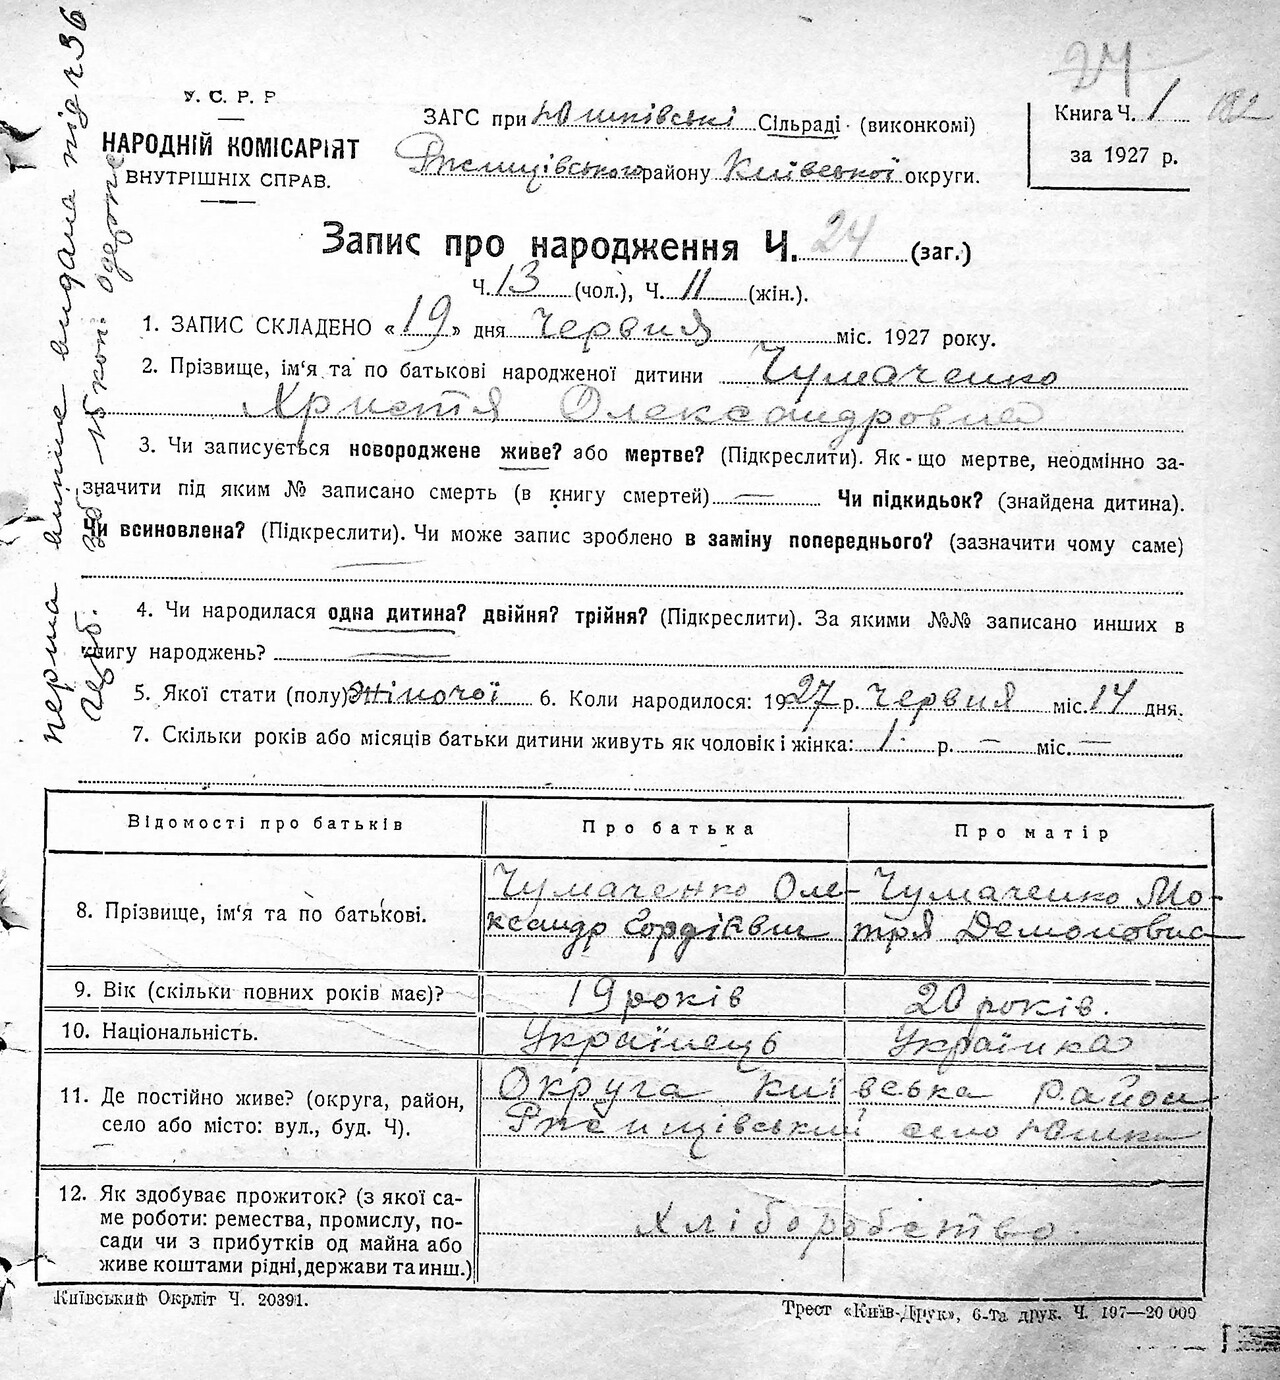 24
У. С. Р. Р
НАРОДНІЙ КОМІСАРІЯТ
ВНУТРІШНІХ СПРАВ.
ЗАГС при Юшківські Сільраді (виконкомі)
Ржищівського району Київської округи.
Книга Ч. 1 102
за 1927 р.
Запис про народження Ч. 24 (заг.)
Ч. 13 (чол.), Ч. 11 (жін.).
1. ЗАПИС СКЛАДЕНО «19» дня Червня міс. 1927 року.
2. Прізвище, ім‘я та по батькові народженої дитини Чумаченко
Христя Олександровна
3. Чи записується новороджене живе? або мертве? (Підкреслити). Як-що мертве, неодмінно за-
значити під яким № записано смерть (в книгу смертей) — Чи підкидьок? (знайдена дитина).
Чи всиновлена? (Підкреслити). Чи може запис зроблено в заміну попереднього? (зазначити чому саме)
4. Чи народилася одна дитина? двійня? трійня? (Підкреслити). За якими №№ записано инших в
книгу народжень?
5. Якої стати (полу) Жіночої 6. Коли народилося: 1927 р. Червня міс. 14 дня.
7. Скільки років або місяців батьки дитини живуть як чоловік і жінка: 1 р. — міс. —
Відомості про батьків Про батька Про матір
8. Прізвище, ім‘я та по батькові.
Чумаченко Оле-
ксандр Гордієвич
Чумаченко Мо-
тря Демоновна
9. Вік (скільки повних років має)? 19 років 20 років.
10. Національність. Українець Українка
11. Де постійно живе? (округа, район,
село або місто: вул., буд. Ч).
Округа Київська район
Ржищівський село Юшки
12. Як здобуває прожиток? (з якої са-
ме роботи: ремества, промислу, по-
сади чи з прибутків од майна або
живе коштами рідні, держави та инш.)
Хліборобство.
Київський Окрліт Ч. 20391.
Трест «Київ-Друк», 6-та друк. Ч. 197—20 000
перша виписка видана під ч 36
зб 15 коп. одерж